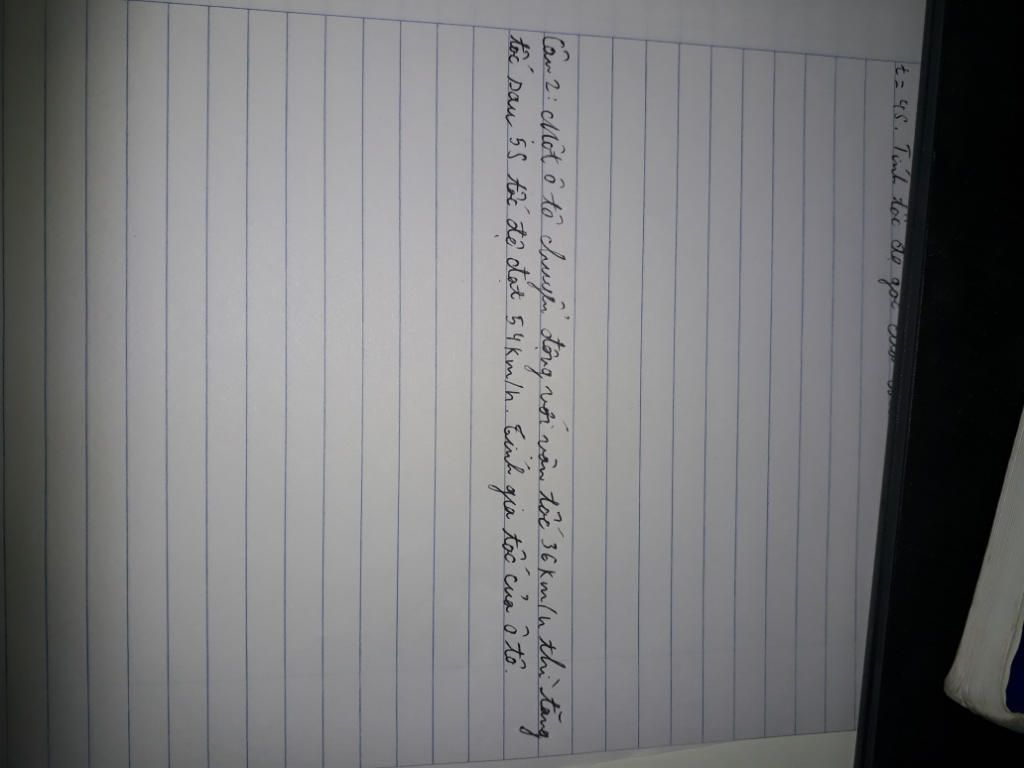 t = 4s. Tính tốc độ góc
Câu 2: Một ô tô chuyển động với vân tốc 36 km/h thì tăng
tốc sau 5s tốc độ đạt 54 km/h. Tính gia tốc của ô tô.